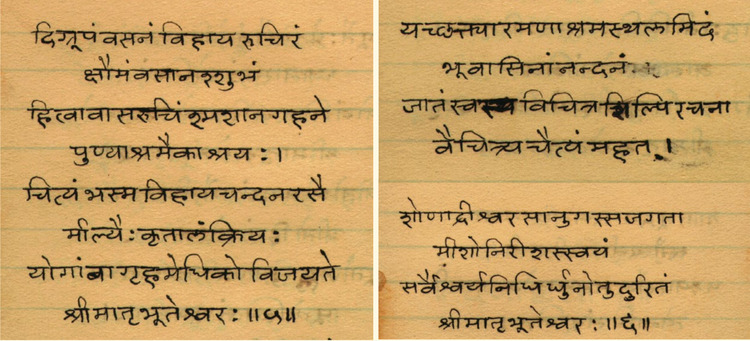 दिग्रूपंवसनंविहाय रुचिरं
क्षौमंवसानश्शुभं
हित्वावासरुचिंश्मशानगहने
पुण्याश्रमैकाश्रयः।
चित्यंभस्मविहायचन्दनरसै
र्माल्यैःकृतालंक्रियः
योगांबागृहमेधिकोविजयते
श्रीमातृभूतेश्वरः॥५॥
यच्छ्रुत्वारमणाश्रमस्थलमिदं
भूवासिनांनन्दनं
जातंस्वस्व विचित्रशिल्पिरचना
वैचित्र्यचैत्यंमहत्।
शोणाद्रीश्वरसानुगस्सजगता
मीशोनिरीशस्स्वयं
सर्वैश्वर्यनिधिर्धुनोतुदुरितं
श्रीमातृभूतेश्वरः॥६॥